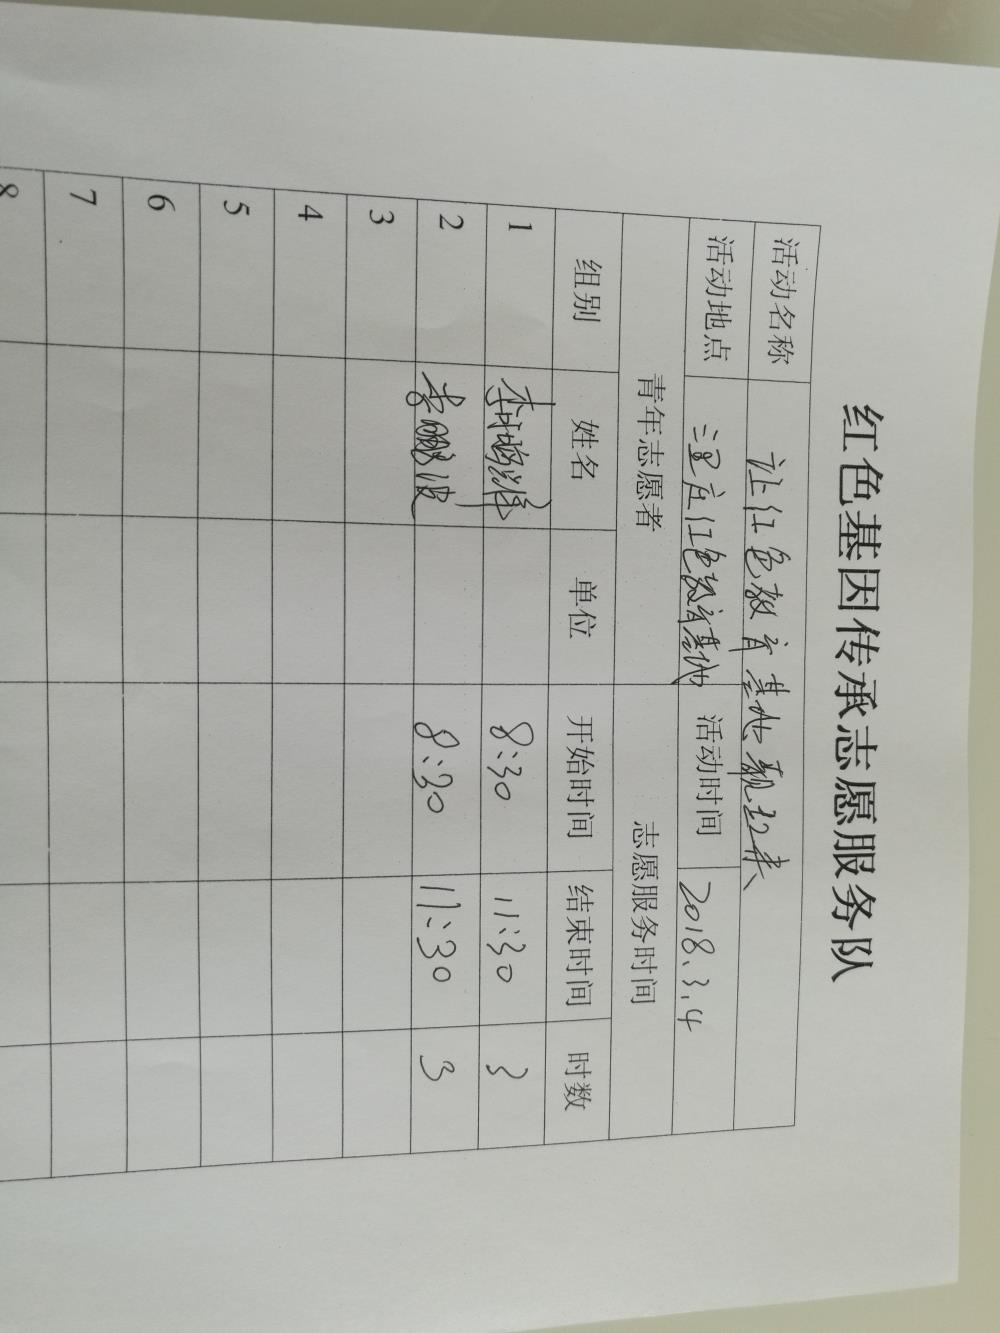 红色基因传承志愿服务队
活动名称 让红色教育基地靓起来
活动地点 红色教育基地 活动时间 2018.3.4
青年志愿者 志愿服务时间
组别 姓名 单位 开始时间 结束时间 时数
1 8:30 11:30 3
2 李鹏波 8:30 11:30 3
3
4
5
6
7
8